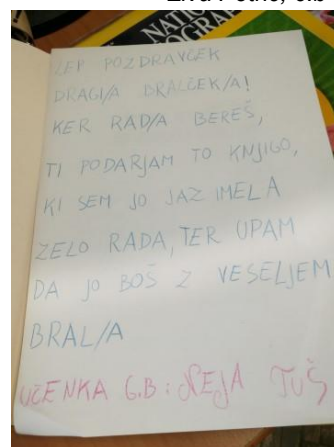 NATI
OGRAF
LEP POZDRAVČEK
DRAGI/A BRALČEK/A!
KER RAD/A BEREŠ,
TI PODARJAM TO KNJIGO,
KI SEM JO JAZ IMELA
ZELO RADA, TER UPAM
DA JO BOŠ Z VESELJEM
BRAL/A
UČENKA 6.B: NEJA TUŠ